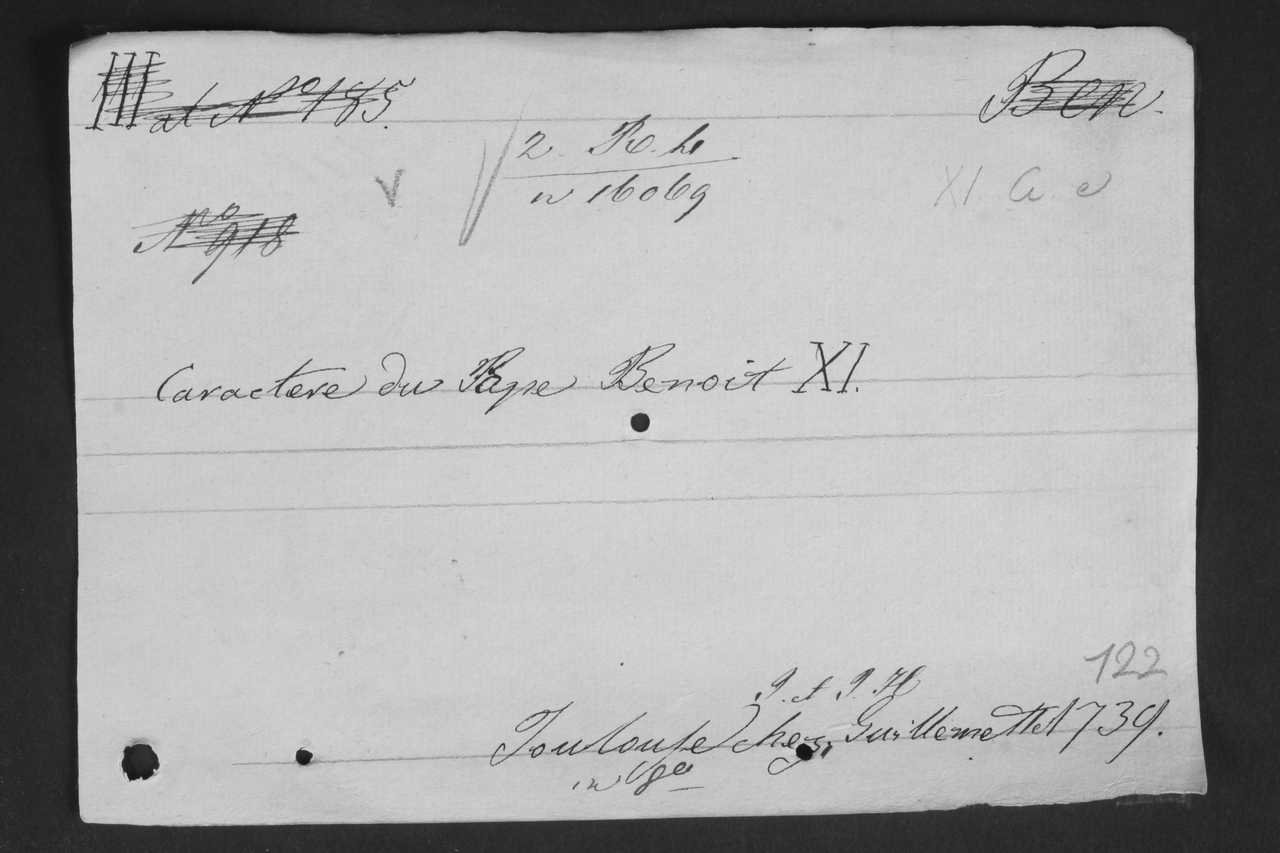 III at N° 185.
Ben.
2. R. h
n 16069
XI a. e
N° 918
Caractere du Pape Benoit XI.
122
J. et J. H
Toulouse chez Guillemette 1739.
in 8°